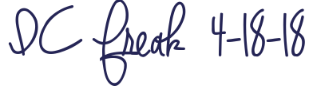 DC freak 4-18-18